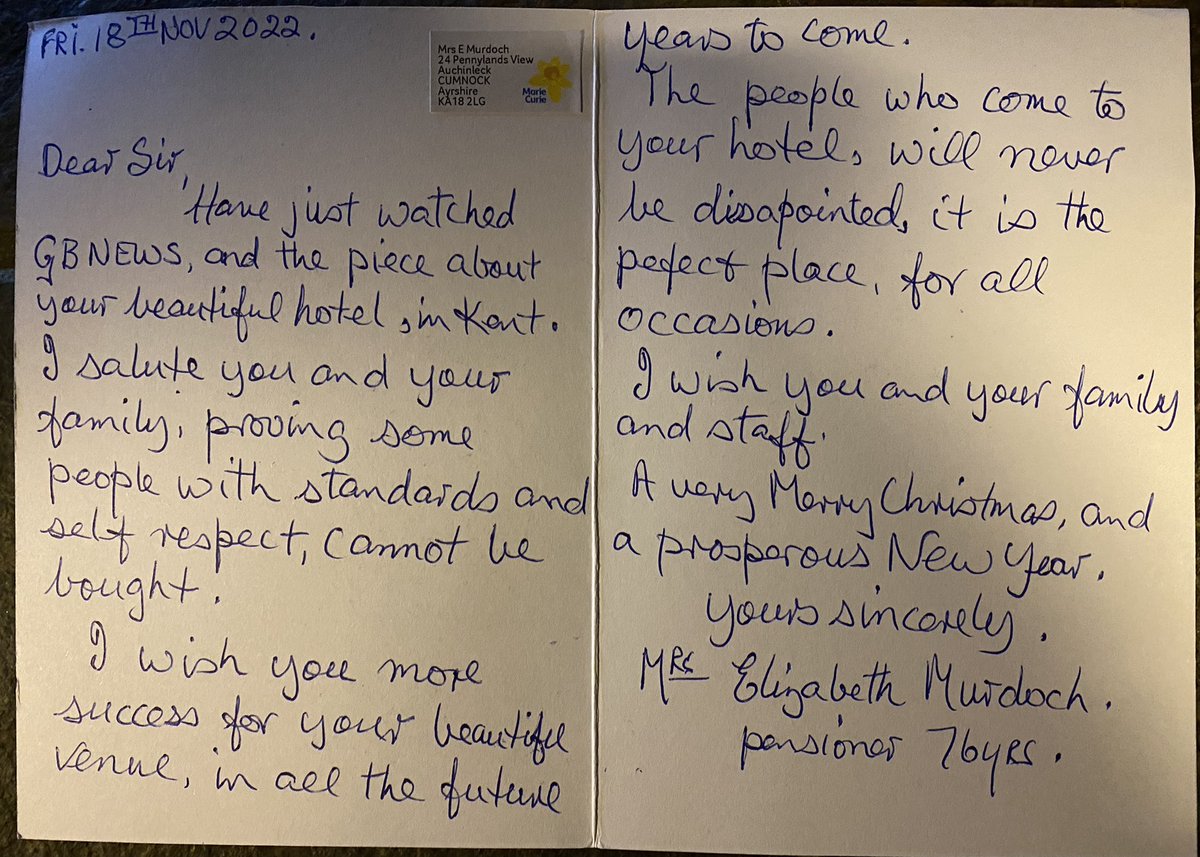 FRI. 18TH NOV 2022.
Mrs E Murdoch
24 Pennylands View
Auchinleck
CUMNOCK
Ayrshire
KA18 2LG
Marie
Curie
Dear Sir,
Have just watched
GBNEWS, and the piece about
your beautiful hotel, in Kent.
I salute you and your
family, proving some
people with standards and
self respect, cannot be
bought.
I wish you more
success for your beautiful
venue, in all the future
years to come.
The people who come to
your hotel, will never
be disapointed, it is the
pefect place, for all
occasions.
I wish you and your family
and staff.
A very Merry Christmas, and
a prosperous New Year.
Yours sincerely.
MRS Elizabeth Murdoch.
pensioner 76yRS.